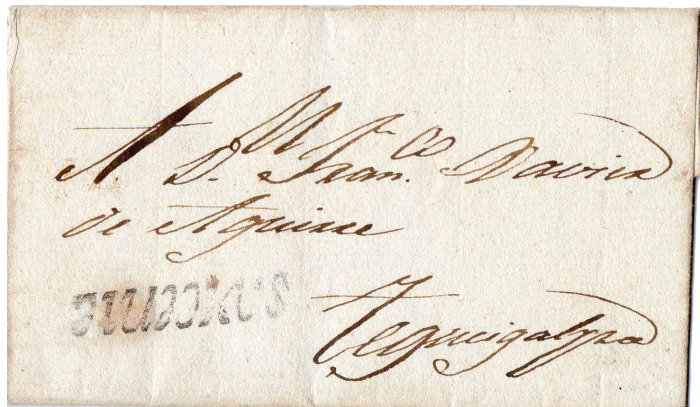 A. D. Fran.co Xavier
de Aguirre
S.VICENTE
Tegucigalpa